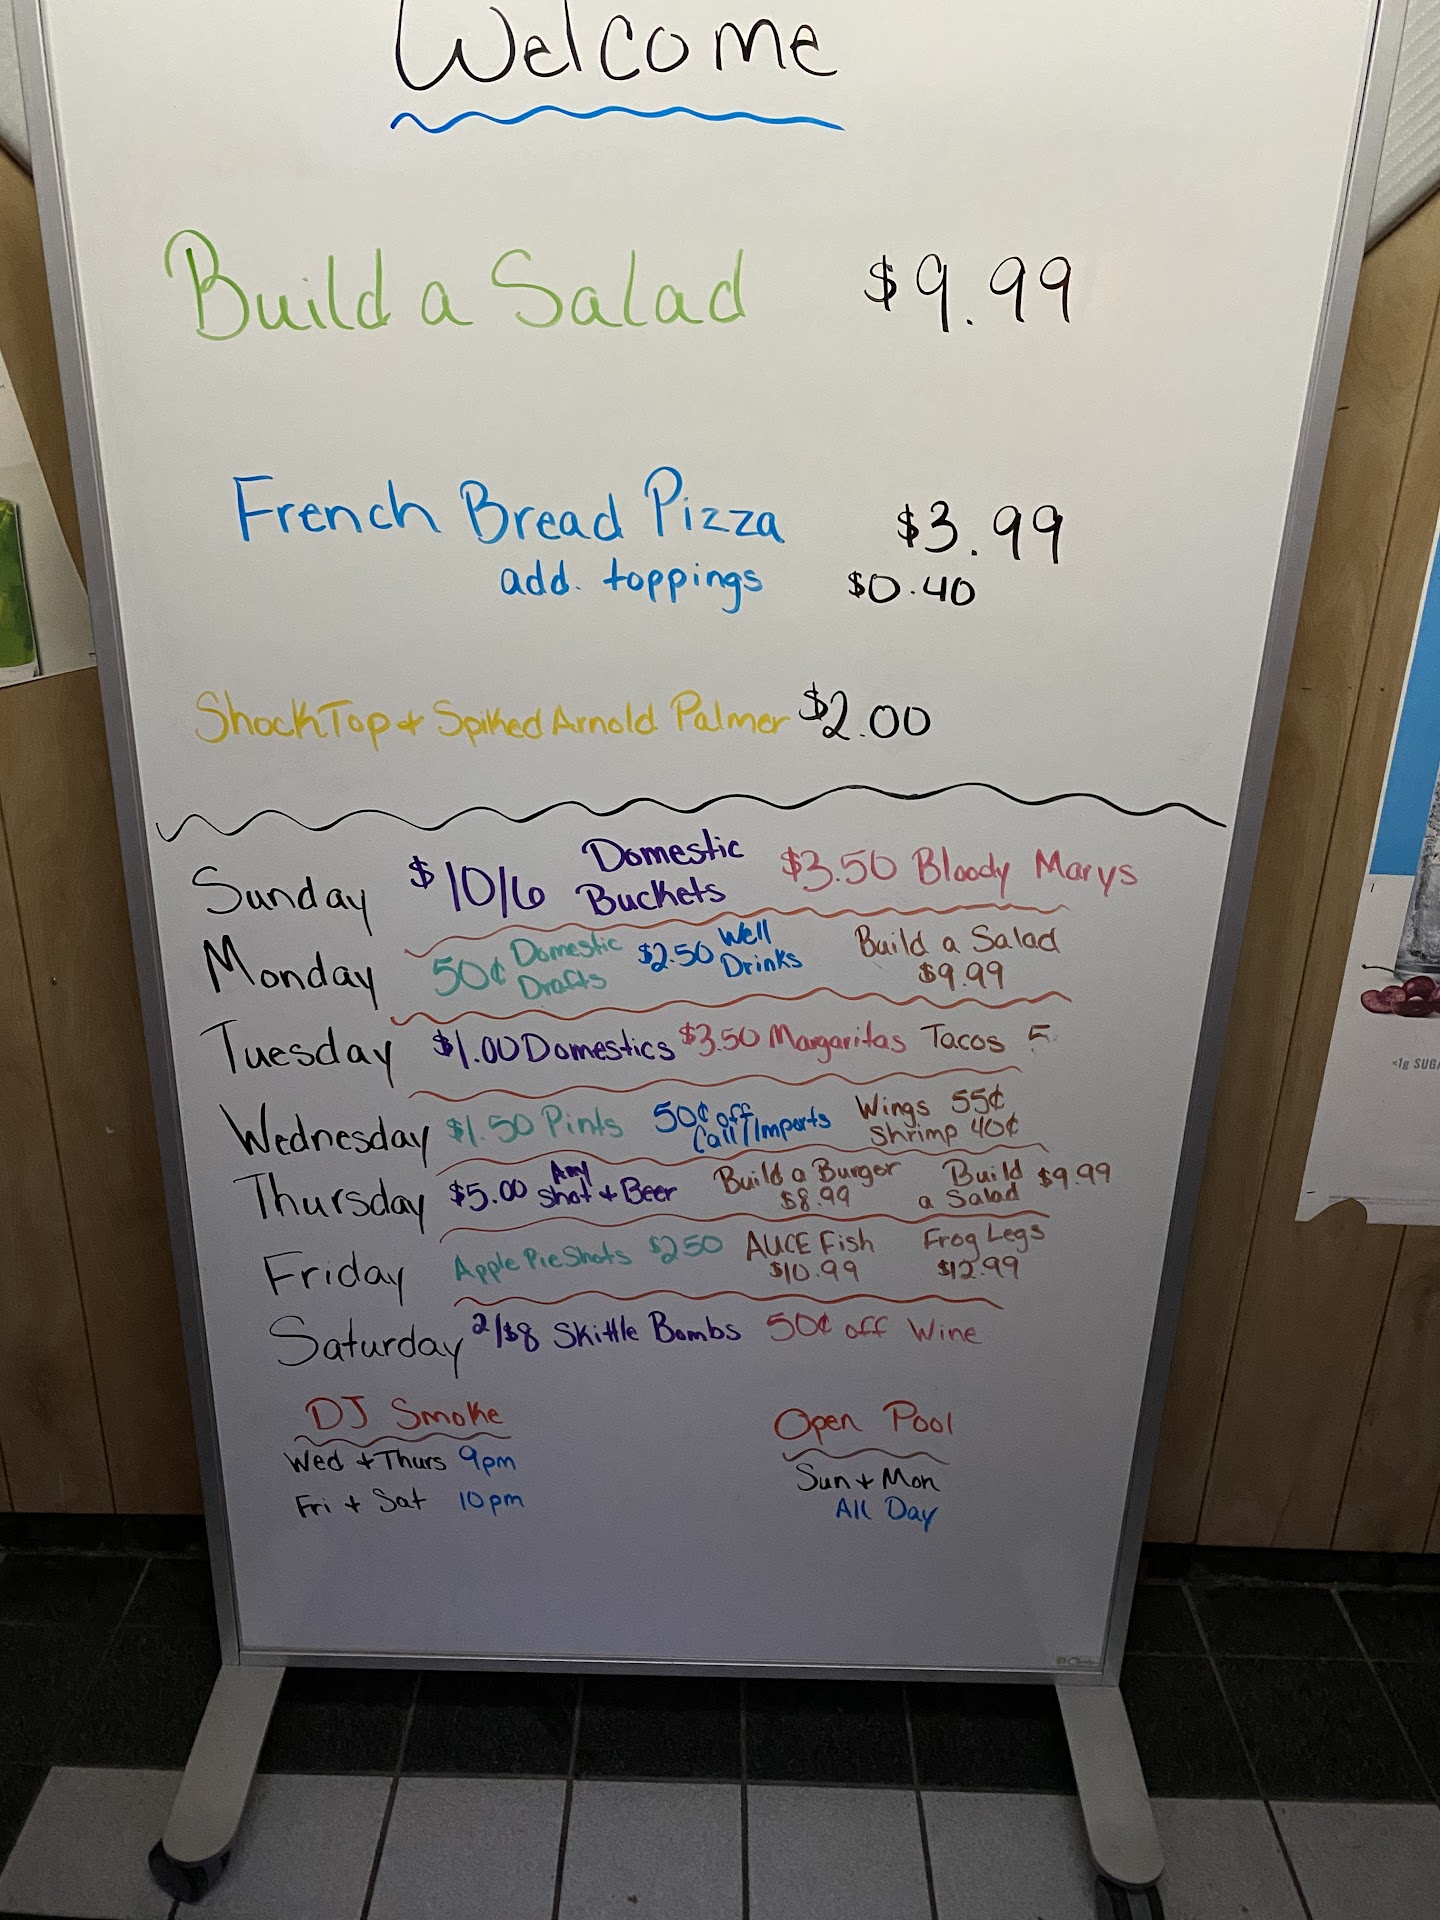 Welcome
Build a Salad $9.99
French Bread Pizza $3.99
add. toppings $0.40
ShockTop + Spiked Arnold Palmer $2.00
Sunday $10/6 Domestic Buckets $3.50 Bloody Marys
Monday 50¢ Domestic Drafts $2.50 Well Drinks Build a Salad $9.99
Tuesday $1.00 Domestics $3.50 Margaritas Tacos
Wednesday $1.50 Pints 50¢ off Call/Imports Wings 55¢ Shrimp 40¢
Thursday $5.00 Any Shot + Beer Build a Burger $8.99 Build a Salad $9.99
Friday Apple Pie Shots $2.50 AUCE Fish $10.99 Frog Legs $12.99
Saturday 2/$8 Skittle Bombs 50¢ off Wine
DJ Smoke
Wed + Thurs 9pm
Fri + Sat 10pm
Open Pool
Sun + Mon
All Day
<1g SUGA